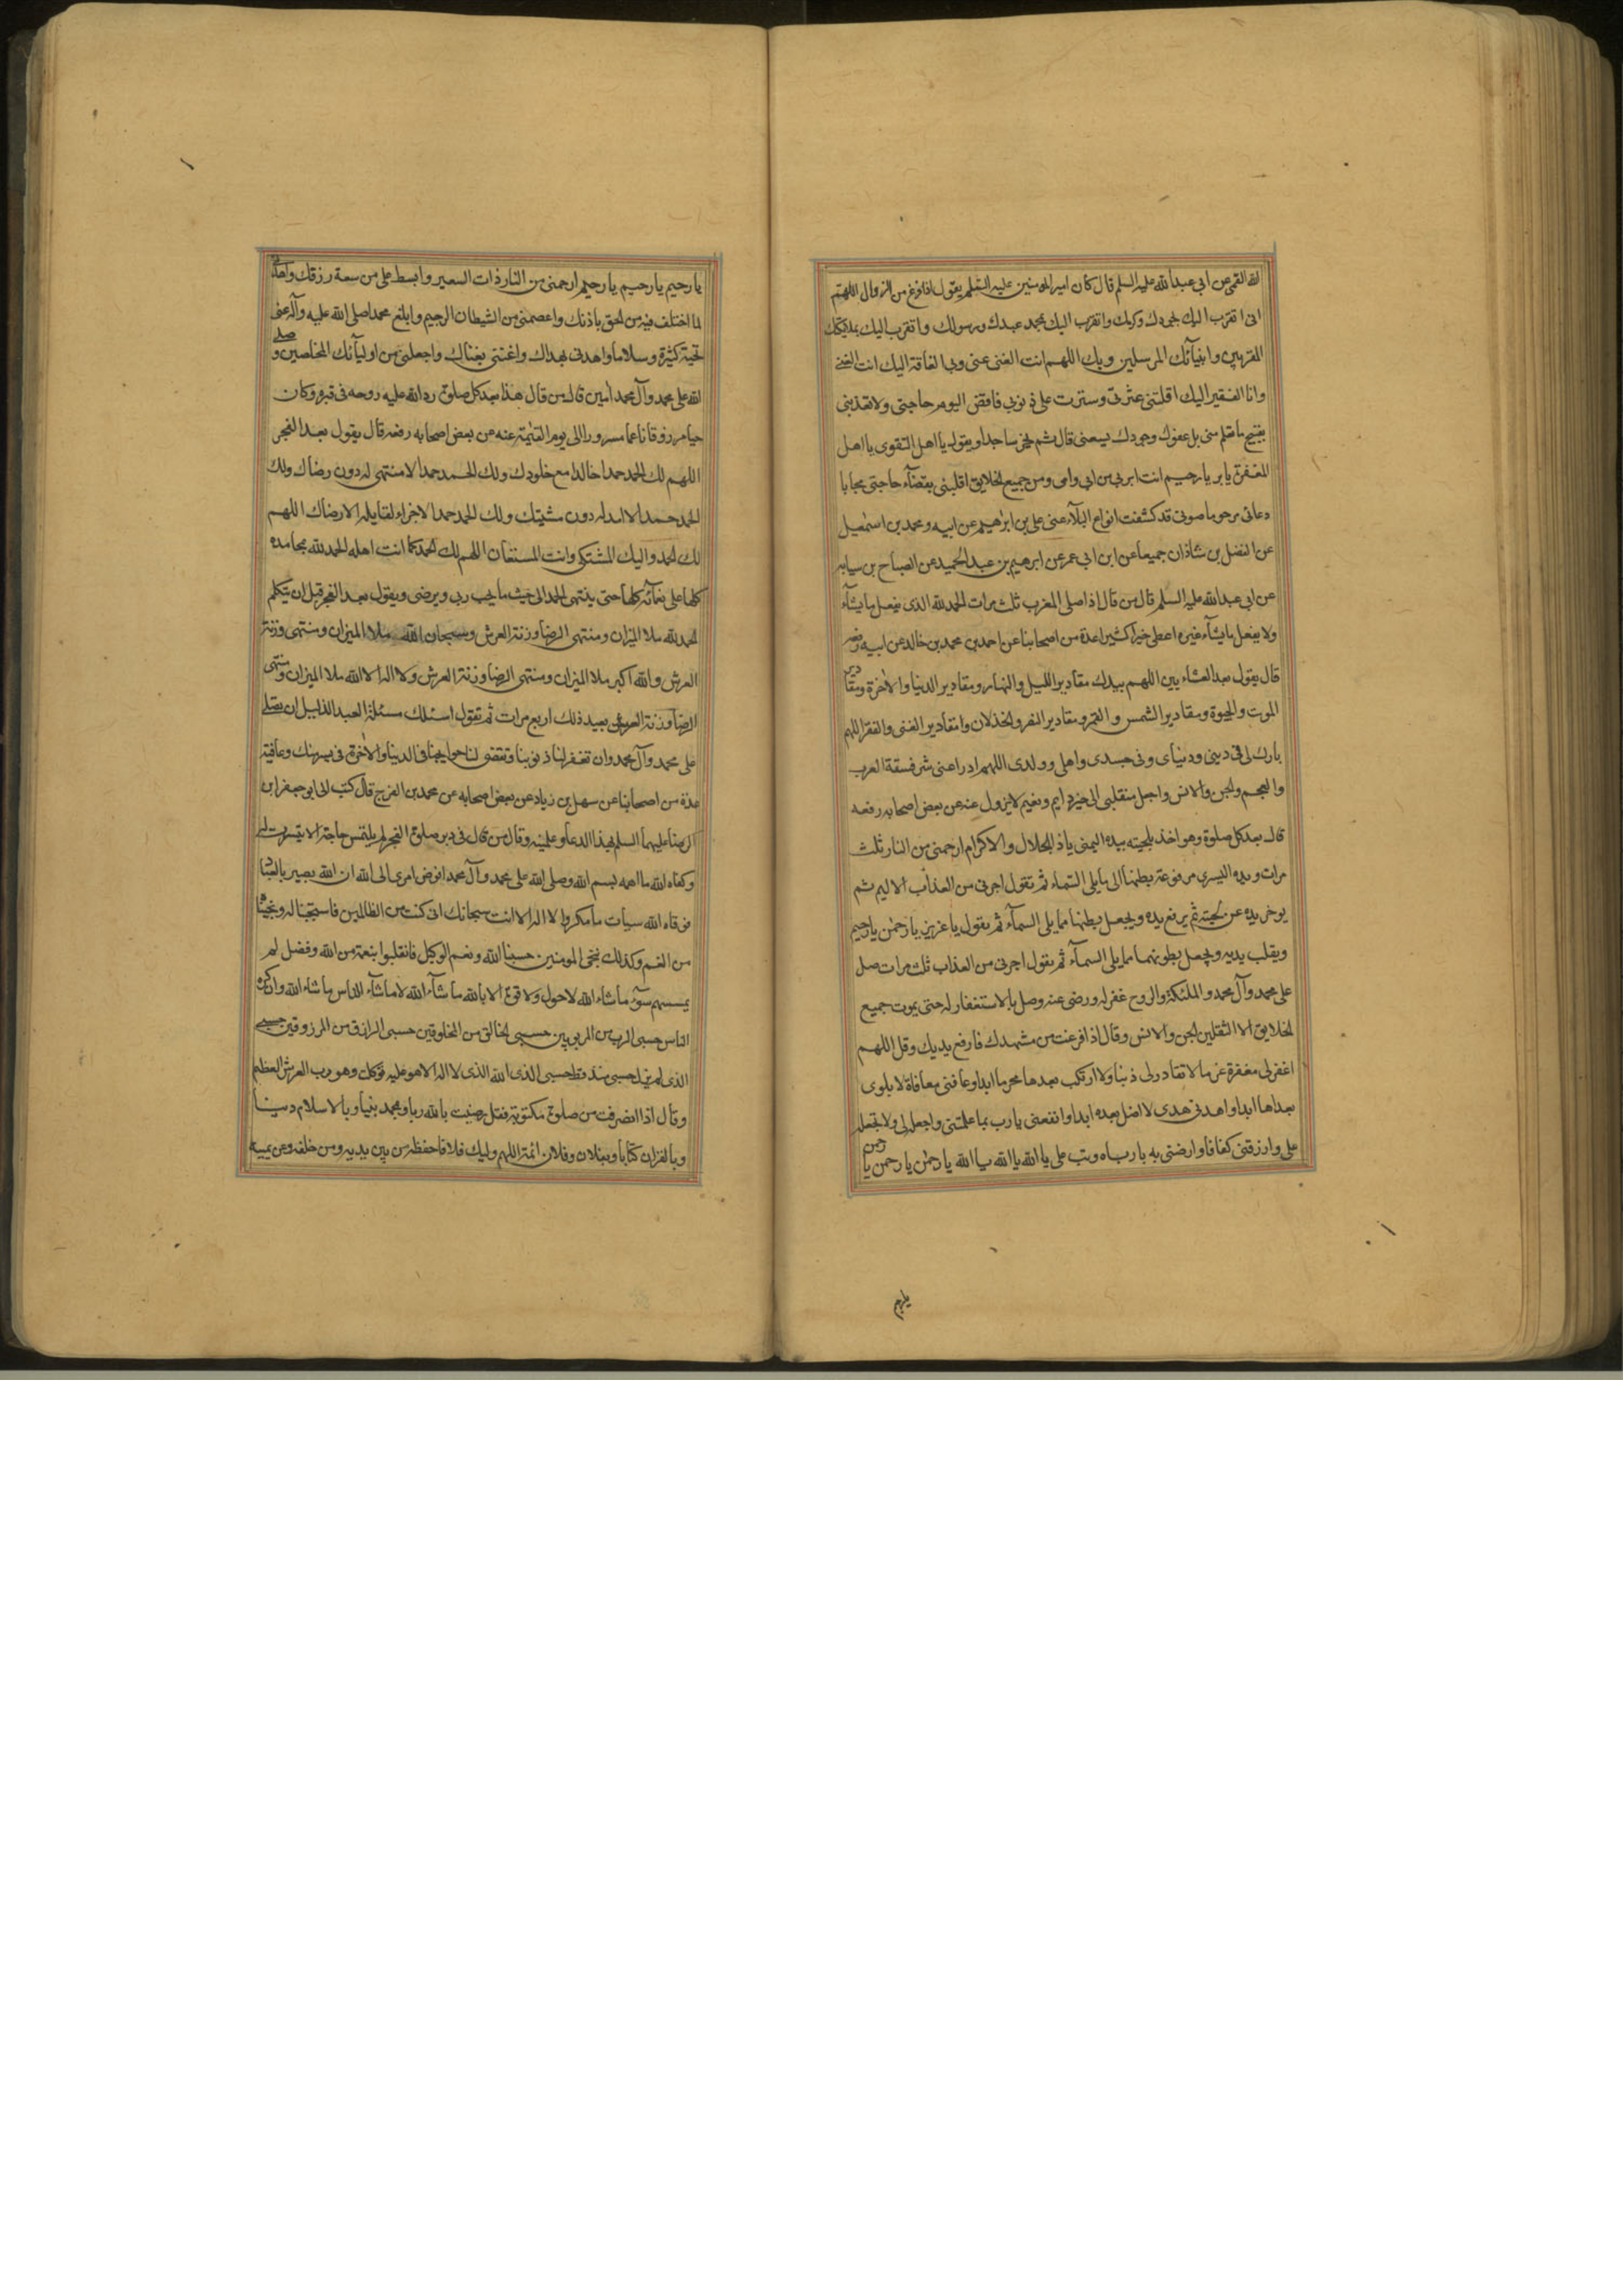 لله القمى عن ابى عبد الله عليه السلم قال كان امير المومنين عليه السلم يقول اذا فرغ من الزوال اللهم
انى اتقرب اليك بجودك وكرمك واتقرب اليك بمحمد عبدك ورسولك واتقرب اليك بملئكتك
المقربين وانبيائك المرسلين وبك اللهم انت الغنى عنى وبى الفاقة اليك انت الغنى
وانا الفقير اليك اقلتنى عثرتى وسترت على ذنوبى فاقض اليوم حاجتى ولا تعذبنى
بقبيح ما تعلم منى بل عفوك وجودك يسعنى قال ثم يخر ساجدا ويقول يا اهل التقوى يا اهل
المغفرة يا بر يا رحيم انت ابر بى من ابى وامى ومن جميع الخلايق اقلبنى بقضاء حاجتى مجابا
دعائى مرحوما صوتى قد كشفت انواع البلاء عنى على بن ابرهيم عن ابيه ومحمد بن اسمعيل
عن الفضل بن شاذان جميعا عن ابن ابى عمر عن ابرهيم بن عبد الحميد عن الصباح بن سيابه
عن ابى عبد الله عليه السلم قال من قال اذا صلى المغرب ثلث مرات الحمد لله الذى يفعل ما يشاء
ولا يفعل ما يشاء غيره اعطى خيرا كثيرا عدة من اصحابنا عن احمد بن محمد بن خالد عن ابيه رفعه
قال يقول بعد العشاء يين اللهم بيدك مقادير الليل والنهار ومقادير الدنيا والاخرة ومقادير
الموت والحيوة ومقادير الشمس والقمر ومقادير النصر والخذلان ومقادير الغنى والفقر اللهم
بارك لى فى دينى ودنياى وفى جسدى واهلى وولدى اللهم ادرا عنى شر فسقة العرب
والعجم والجن والانس واجعل منقلبى الى خير دايم ونعيم لا يزول عنه عن بعض اصحابه رفعه
قال بعد كل صلوة وهو اخذ بلحيته بيده اليمنى يا ذ الجلال والاكرام ارحمنى من النار ثلث
مرات ويده اليسرى مرفوعة بطنها الى ما يلى السماء ثم تقول اجرنى من العذاب الاليم ثم
يوخر يده عن لحيته ثم يرفع يده ويجعل بطنها مما يلى السماء ثم يقول يا عزيز يا رحمن يا رحيم
ويقلب يديه ويجعل بطونهما مما يلى السماء ثم يقول اجرنى من العذاب ثلث مرات صل
على محمد وآل محمد والملئكة والروح غفر له ورضى عنه وصل بالاستغفار له حتى يموت جميع
الخلايق الا الثقلين الجن والانس وقال اذا فرغت من مشهدك فارفع يديك وقل اللهم
اغفر لى مغفرة عزما لا تغادر لى ذنبا ولا ارتكب بعدها محرما ابدا وعافنى معافاة لا بلوى
بعدها ابدا واهدنى هدى لا اضل بعده ابدا وانفعنى يا رب بما علمتنى واجعله لى ولا تجعله
على وارزقنى كفافا وارضنى به يا رباه وتب على يا الله يا الله يا الله يا رحمن يا رحمن يا رحمن
يا رحيم
يا رحيم يا رحيم يا رحيم ارحمنى من النار ذات السعير وابسط على من سعة رزقك واهدنى
لما اختلف فيه من الحق باذنك واعصمنى من الشيطان الرجيم وابلغ محمدا صلى الله عليه وآله عنى
تحية كثيرة وسلاما واهدنى بهداك واغننى بغناك واجعلنى من اوليائك المخلصين وصلى
الله على محمد وآل محمد امين قال من قال هذا بعد كل صلوة رد الله عليه روحه فى قبره وكان
حيا مرزوقا ناعما مسرورا الى يوم القيمة عنه عن بعض اصحابه رفعه قال يقول بعد الفجر
اللهم لك الحمد حمدا خالدا مع خلودك ولك الحمد حمدا لا منتهى له دون رضاك ولك
الحمد حمدا لا امد له دون مشيتك ولك الحمد حمدا لا جزاء لقايله الا رضاك اللهم
لك الحمد واليك المشتكى وانت المستعان اللهم لك الحمد كما انت اهله الحمد لله بمحامده
كلها على نعمائه كلها حتى ينتهى الحمد الى حيث ما يحب ربى ويرضى ويقول بعد الفجر قبل ان يتكلم
الحمد لله ملا الميزان ومنتهى الرضا وزنة العرش وسبحان الله ملا الميزان ومنتهى وزنة
العرش والله اكبر ملا الميزان ومنتهى الرضا وزنة العرش ولا اله الا الله ملا الميزان ومنتهى
الرضا وزنة العرش يعيد ذلك اربع مرات ثم تقول اسئلك مسئلة العبد الذليل ان تصلى
على محمد وآل محمد وان تغفر لنا ذنوبنا وتقضى لنا حوايجنا فى الدنيا والاخرة فى يسر منك وعافية
عدة من اصحابنا عن سهل بن زياد عن بعض اصحابه عن محمد بن الفرج قال كتب الى ابو جعفر ابن
الرضا عليهما السلم بهذا الدعا وعلمنيه وقال من قال فى دبر صلوة الفجر لم يلتمس حاجة الا تيسرت له
وكفاه الله ما اهمه بسم الله وصلى الله على محمد وآل محمد افوض امرى الى الله ان الله بصير بالعباد
فوقاه الله سيات ما مكروا لا اله الا انت سبحانك انى كنت من الظالمين فاستجبنا له ونجيناه
من الغم وكذلك ننجى المومنين حسبنا الله ونعم الوكيل فانقلبوا بنعمة من الله وفضل لم
يمسسهم سوء ما شاء الله لا حول ولا قوة الا بالله ما شاء الله لا ما شاء الناس ما شاء الله وان كره
الناس حسبى الرب من المربوبين حسبى الخالق من المخلوقين حسبى الرازق من المرزوقين حسبى
الذى لم يزل حسبى منذ قط حسبى الذى الله الذى لا اله الا هو عليه توكلت وهو رب العرش العظيم
وقال اذا انصرفت من صلوة مكتوبة فقل رضيت بالله ربا وبمحمد نبيا وبالاسلام دينا
وبالقران كتابا وبفلان وفلان ائمة اللهم وليك فلانا فاحفظه من بين يديه ومن خلفه وعن يمينه